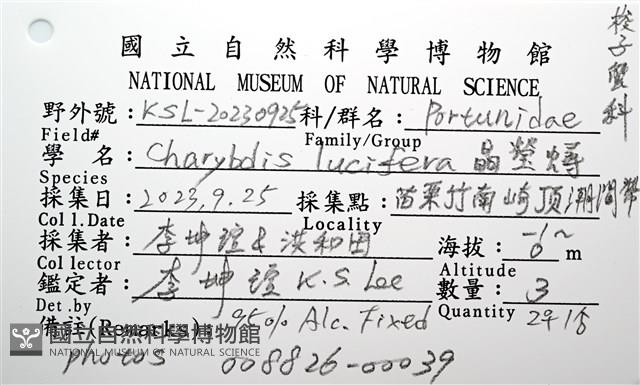 梭子蟹科
國立自然科學博物館
NATIONAL MUSEUM OF NATURAL SCIENCE
野外號：KSL-20230925 科/群名：Portunidae
Field# Family/Group
學 名：Charybdis lucifera 晶瑩蟳
Species
採集日：2023,9.25 採集點：苗栗竹南崎頂潮間帶
Coll.Date Locality
採集者：李坤瑄 & 洪和田 海拔：-1~0 m
Collector Altitude
鑑定者：李坤瑄 K.S. Lee 數量：3
Det.by Quantity 2♀1♂
備註(Remarks)：95% Alc. Fixed
國立自然科學博物館
NATIONAL MUSEUM OF NATURAL SCIENCE
photos 008826-00039